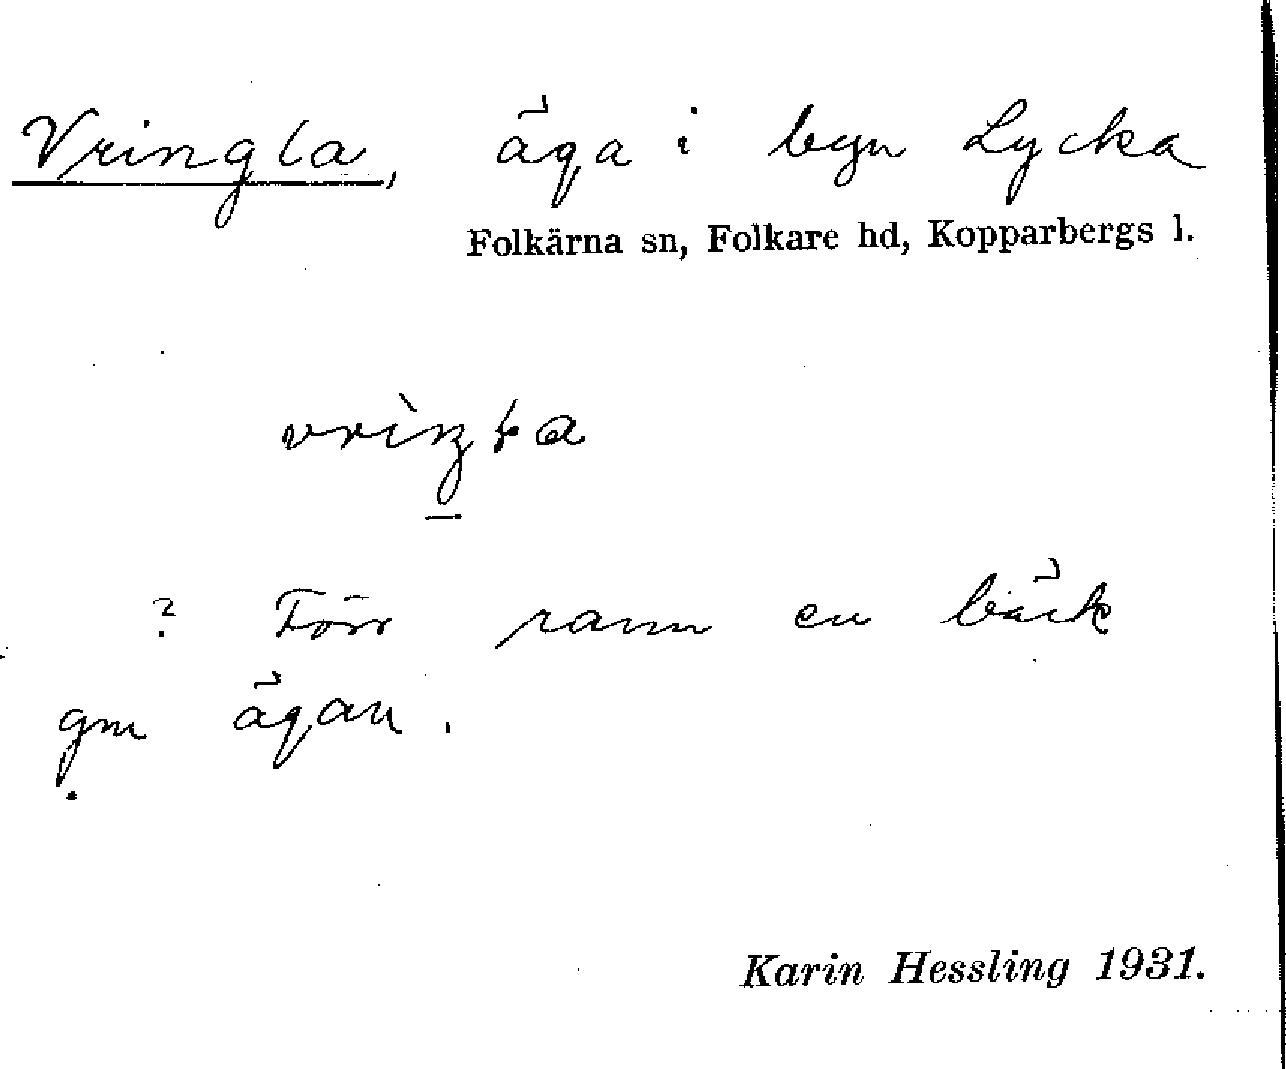 Vringla, äga i byn Lycka
Folkärna sn, Folkare hd, Kopparbergs l.
? Förr rann en bäck
gm ägan.
Karin Hessling 1931.